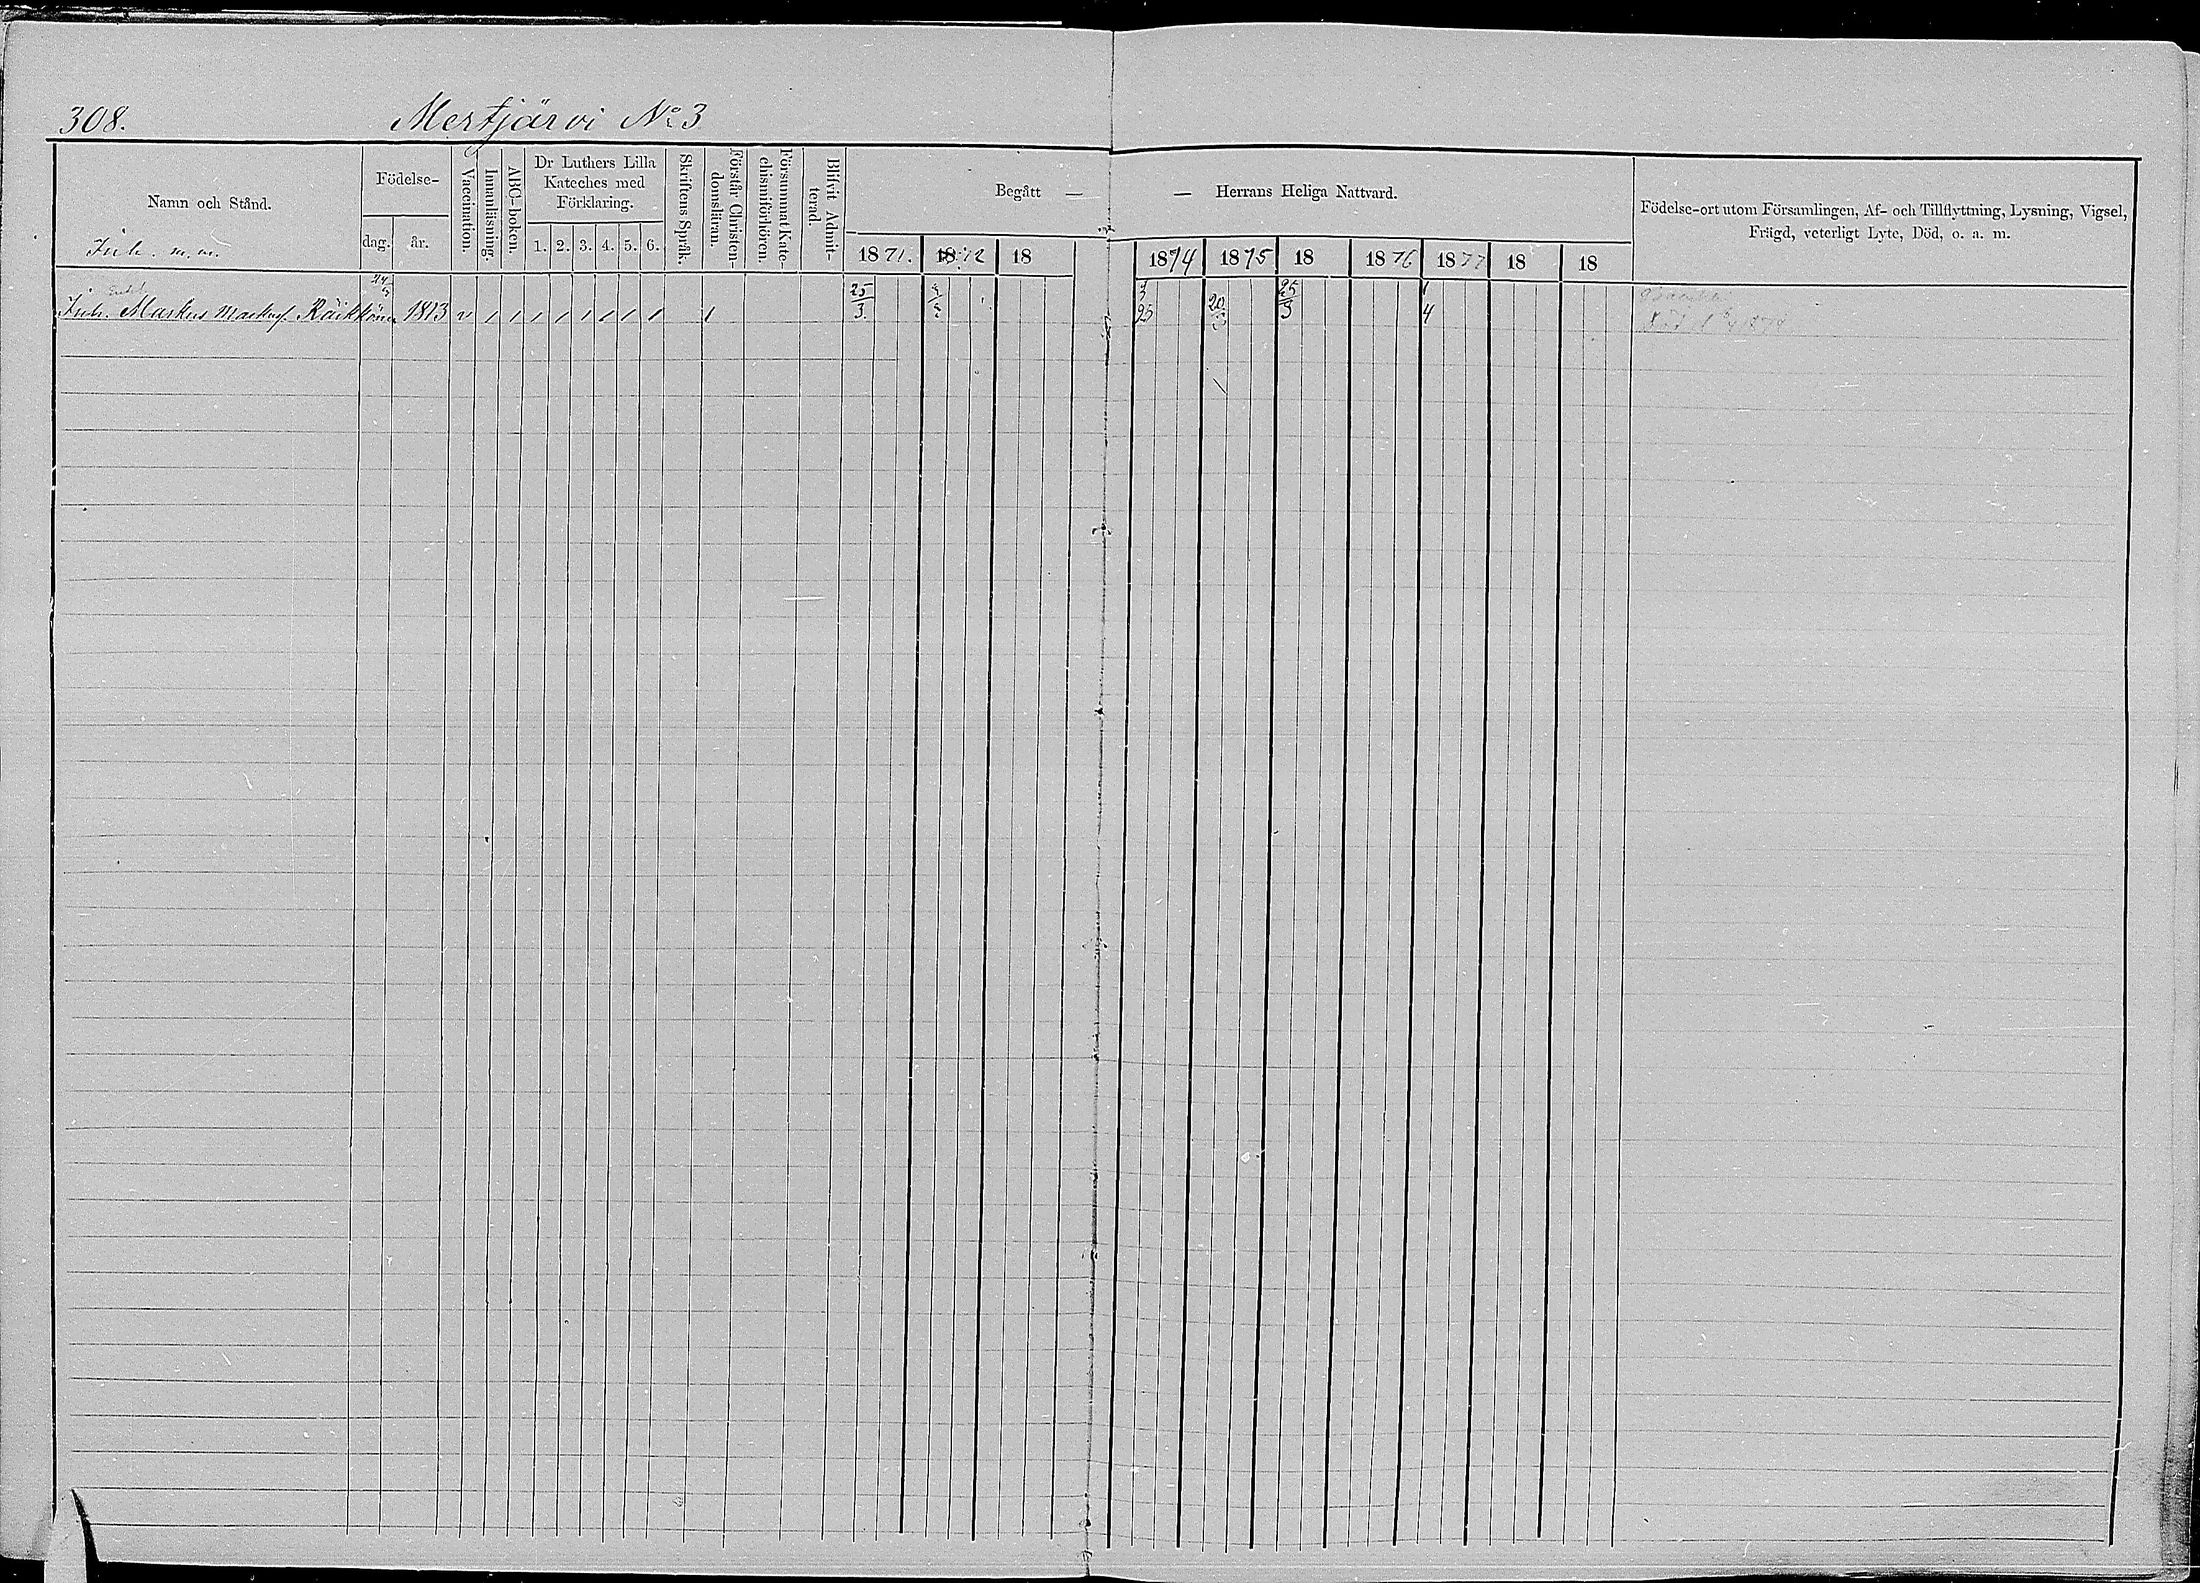 308. Mertjärvi No 3
Namn och Stånd.
Inh. m.m.
Födelse-
dag. år.
Vaccination.
Innanläsning.
ABC-boken.
Dr Luthers Lilla
Kateches med
Förklaring.
1. 2. 3. 4. 5. 6.
Skriftens Språk.
Förstår Christen-
domsläran.
Försummat Kate-
chismiförhören.
Blifvit Admit-
terad.
Begått — — Herrans Heliga Nattvard.
1871. 1872 18 1874 1875 18 1876 1877 18 18
Födelse-ort utom Församlingen, Af- och Tillflyttning, Lysning, Vigsel,
Frägd, veterligt Lyte, Död, o. a. m.
Inh. Markus Markusf. Räikkönen 1813 v / / / / / / / / / 25/3 20 25/3 1/4